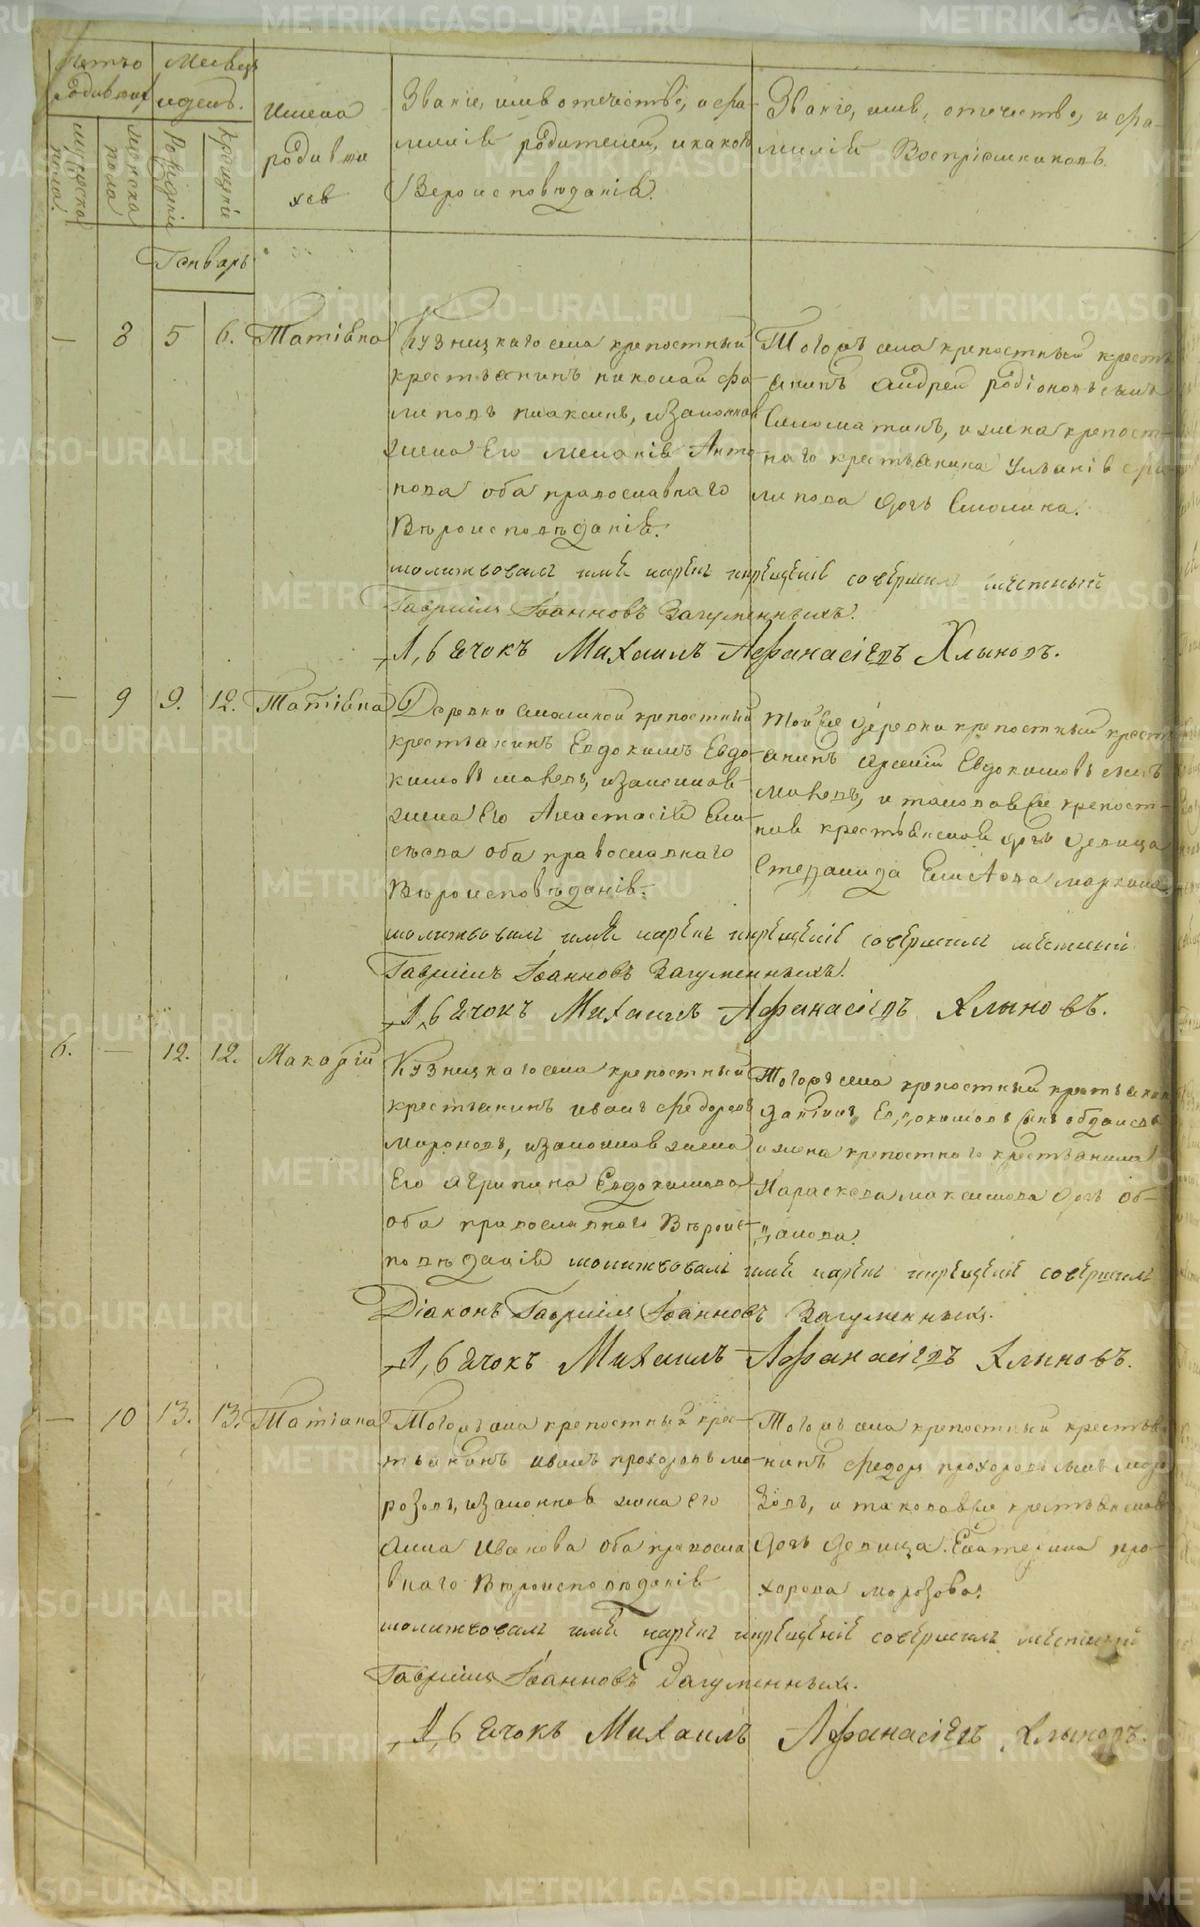 METRIKI.GASO-URAL.RU
Щетъ родившихся
Месяцъ и день.
Имена родившихся
Званіе, имя отечество, и фамилія родителей, и какова Вероисповеданія.
Званіе, имя, отечество, и фамилія Воспріемниковъ
мужеска пола.
женска пола
Рожденіе
Крещеніе
Генварь
— 8 5 6. Татіяна
Кузнецкаго села крепостный
крестьянинъ николай фи-
липовъ
жена Его меланія Анто-
нова оба православнаго
Вѣроисповѣданія.
Тогожъ села крепостный кресть-
янинъ Андрей родіоновъ сынъ
и жена крепост-
наго крестьянина Ульянія фи-
липова дочь
молитвовалъ имя нарекъ и крещеніе совершилъ местный
Гавріилъ Іоанновъ Загуменныхъ.
Михаилъ Афанасіевъ Хлыновъ.
— 9 9. 12. Татіяна
Деревни крепостный
крестьянинъ Евдокимъ Евдо-
кимовъ и законная
жена Его Анастасія Ели-
сѣева оба православнаго
Вѣроисповѣданія.
Той же деревни крепостный кресть-
янинъ Евдокимовъ сынъ
и таковая же крепост-
ная дочь девица
Степанида
молитвовалъ имя нарекъ и крещеніе совершилъ местный
Гавріилъ Іоанновъ Загуменныхъ.
Михаилъ Афанасіевъ Хлыновъ.
6. — 12. 12. Макарій
Кузнецкаго села крепостный
крестьянинъ иванъ федоровъ
мироновъ, и законная жена
Его агрипина Евдокимова
оба православнаго Вѣроис-
повѣданія
Тогожъ села крепостный крестьянинъ
и жена крепостнаго крестьянина
Параскева максимова дочь
молитвовалъ имя нарекъ и крещеніе совершилъ
Діаконъ Гавріилъ Іоанновъ Загуменныхъ.
Михаилъ Афанасіевъ Хлыновъ.
— 10 13. 13. Татіана
Тогожъ села крепостный крес-
тьянинъ иванъ прохоровъ мо-
розовъ, и законная жена его
Анна Иванова оба правосла-
внаго Вѣроисповѣданія
Тогожъ села крепостный крестья-
нинъ федоръ прохоровъ сынъ моро-
зовъ, и таковая же крестьянская
дочь девица Екатерина про-
хорова морозова.
молитвовалъ имя нарекъ и крещеніе совершилъ местный
Гавріилъ Іоанновъ Загуменныхъ.
Михаилъ Афанасіевъ Хлыновъ.